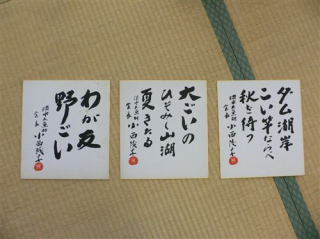 ダム湖岸
こい竿ならべ
秋を待つ
会長 小西
大ごいの
ひそみし山湖
夏きたる
会長 小西
わが友
野ごい
会長 小西